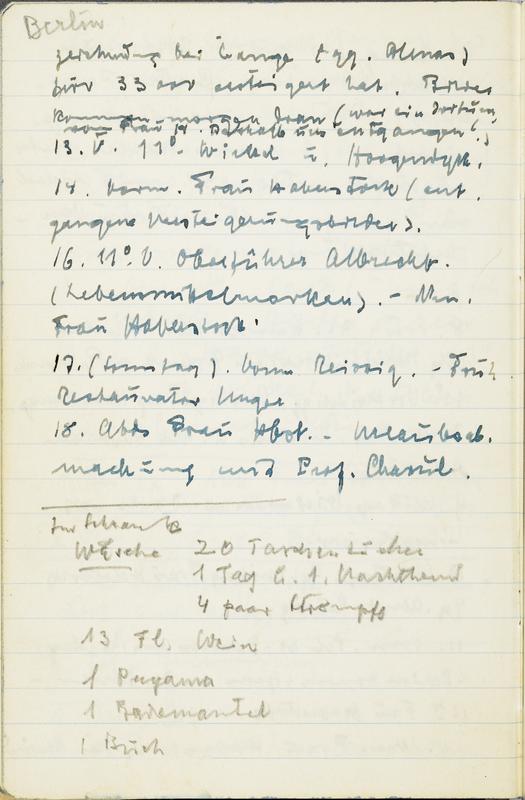 Berlin
zeichnung bei Lange (gg. Almas)
für 33 000 ersteigert hat. Bilder
kommen morgen dran (war ein Irrtum,
von Frau H. Deshalb uns entgangen!.)
13. V. 11⁰. Wickel u. Hoogendyk.
14. Vorm. Frau Haberstock (ent-
gangene Versteigerungsbilder).
16. 11⁰ V. Oberführer Albrecht.
(Lebensmittelmarken). - Nm.
Frau Haberstock.
17. (Sonntag). Vorm Reissig. - Früh
Restaurator Unger
18. Abds Frau Hbst. - Urlaub
machung und Prof. Chaoul.
Im Schrank
Wäsche 20 Taschentücher
1 Tag u. 1. Nachthemd
4 paar Strümpfe
13 Fl. Wein
1 Puyama
1 Bademantel
1 Buch